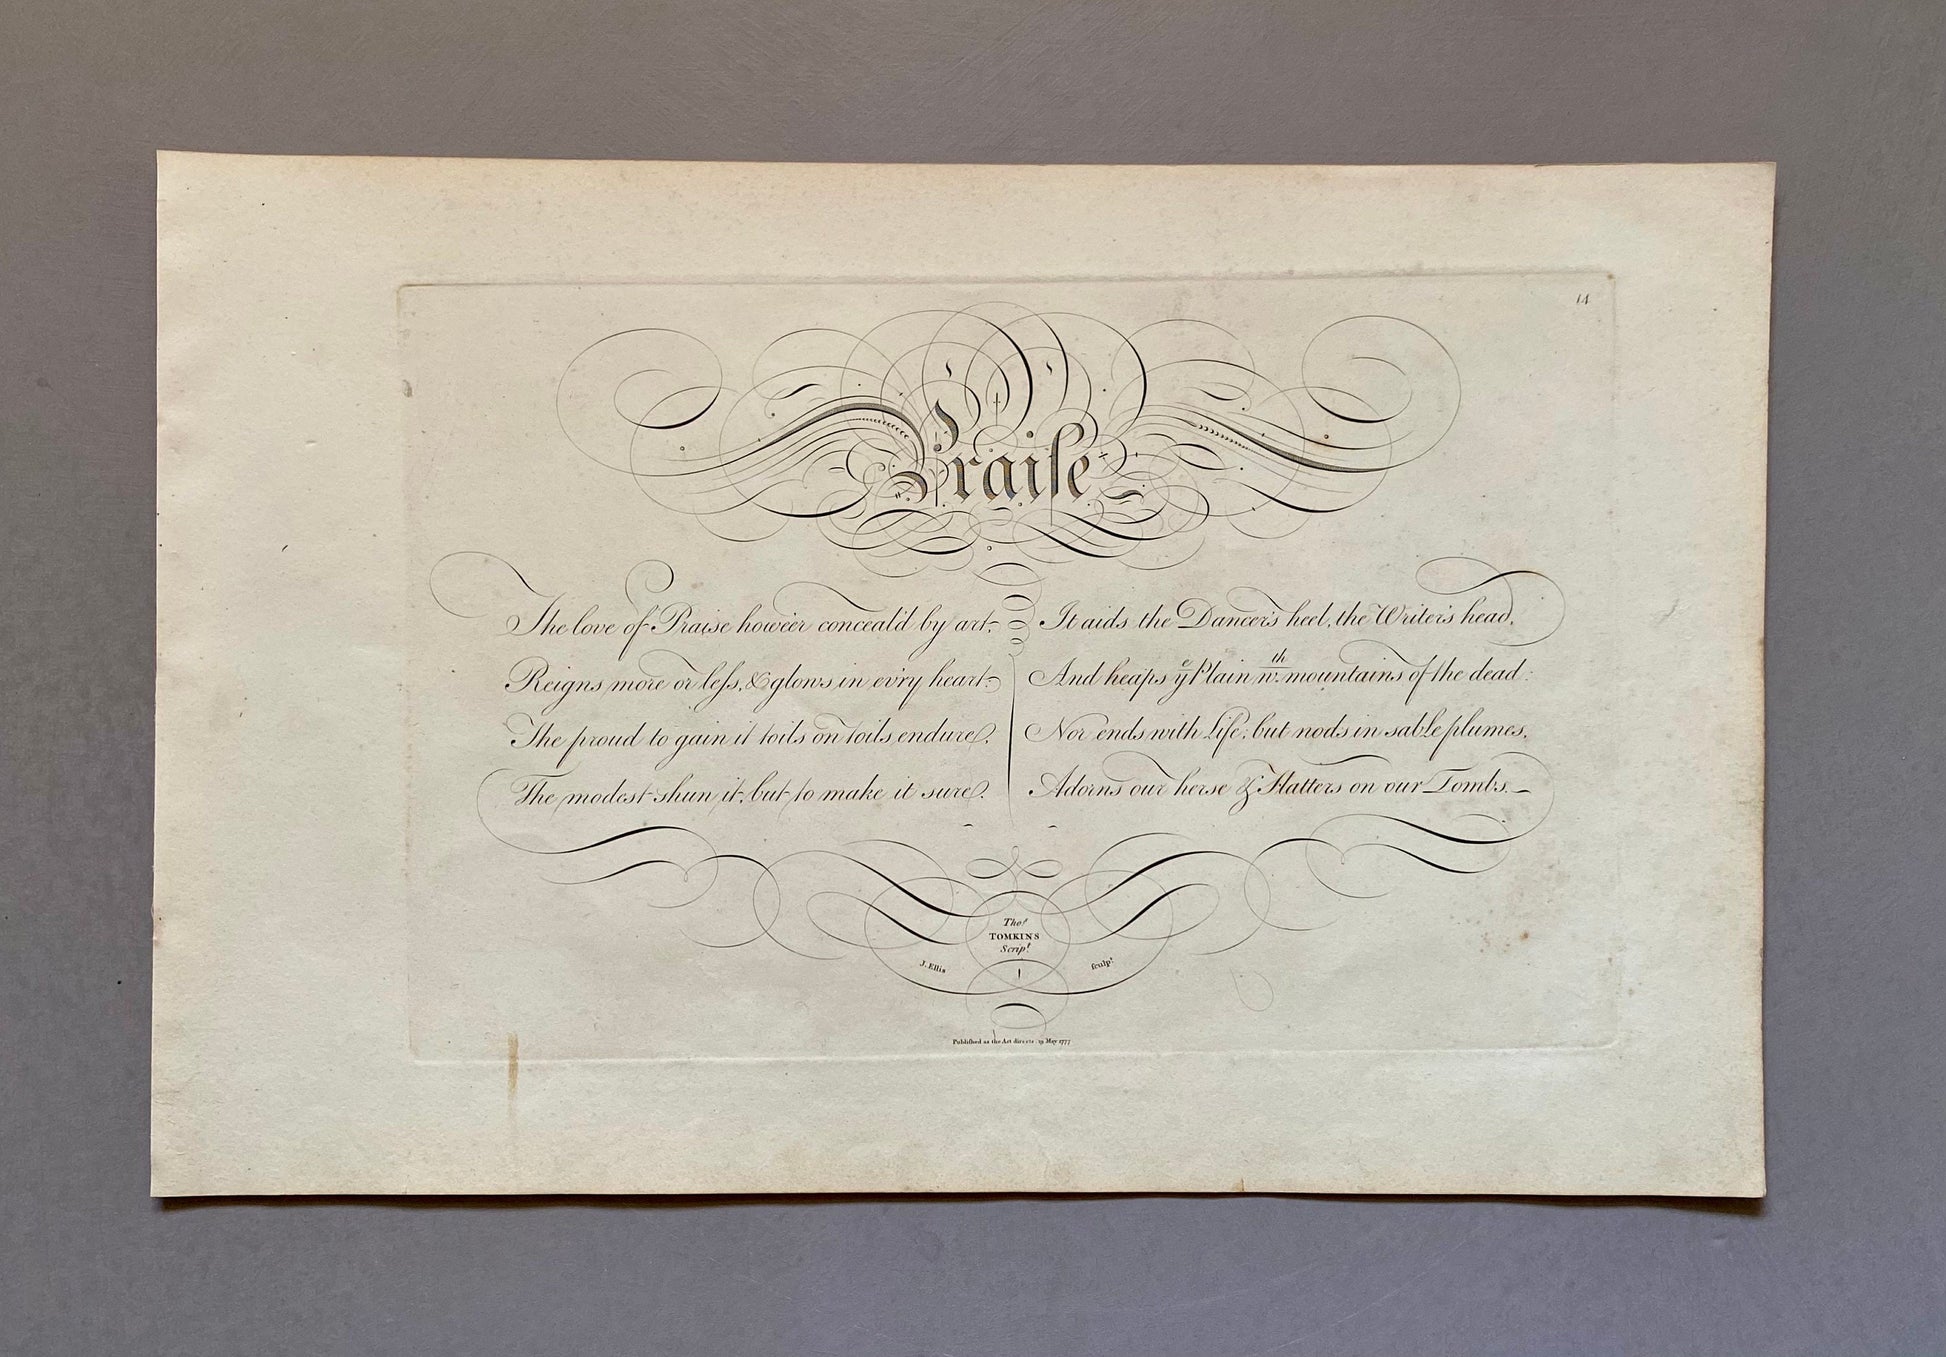 14
Praiſe
The love of Praise howe'er conceal'd by art,
Reigns more or leſs, & glows in ev'ry heart:
The proud to gain it toils on toils endure,
The modest shun it, but to make it sure.
It aids the Dancer's heel, the Writer's head,
And heaps yᵉ Plain wᵗʰ mountains of the dead:
Nor ends with Life; but nods in sable plumes,
Adorns our herse & Flatters on our Tombs.
Thoˢ
TOMKINS
Scripᵗ
J. Ellis ſculpᵗ
Publiſhed as the Act directs 19 May 1777